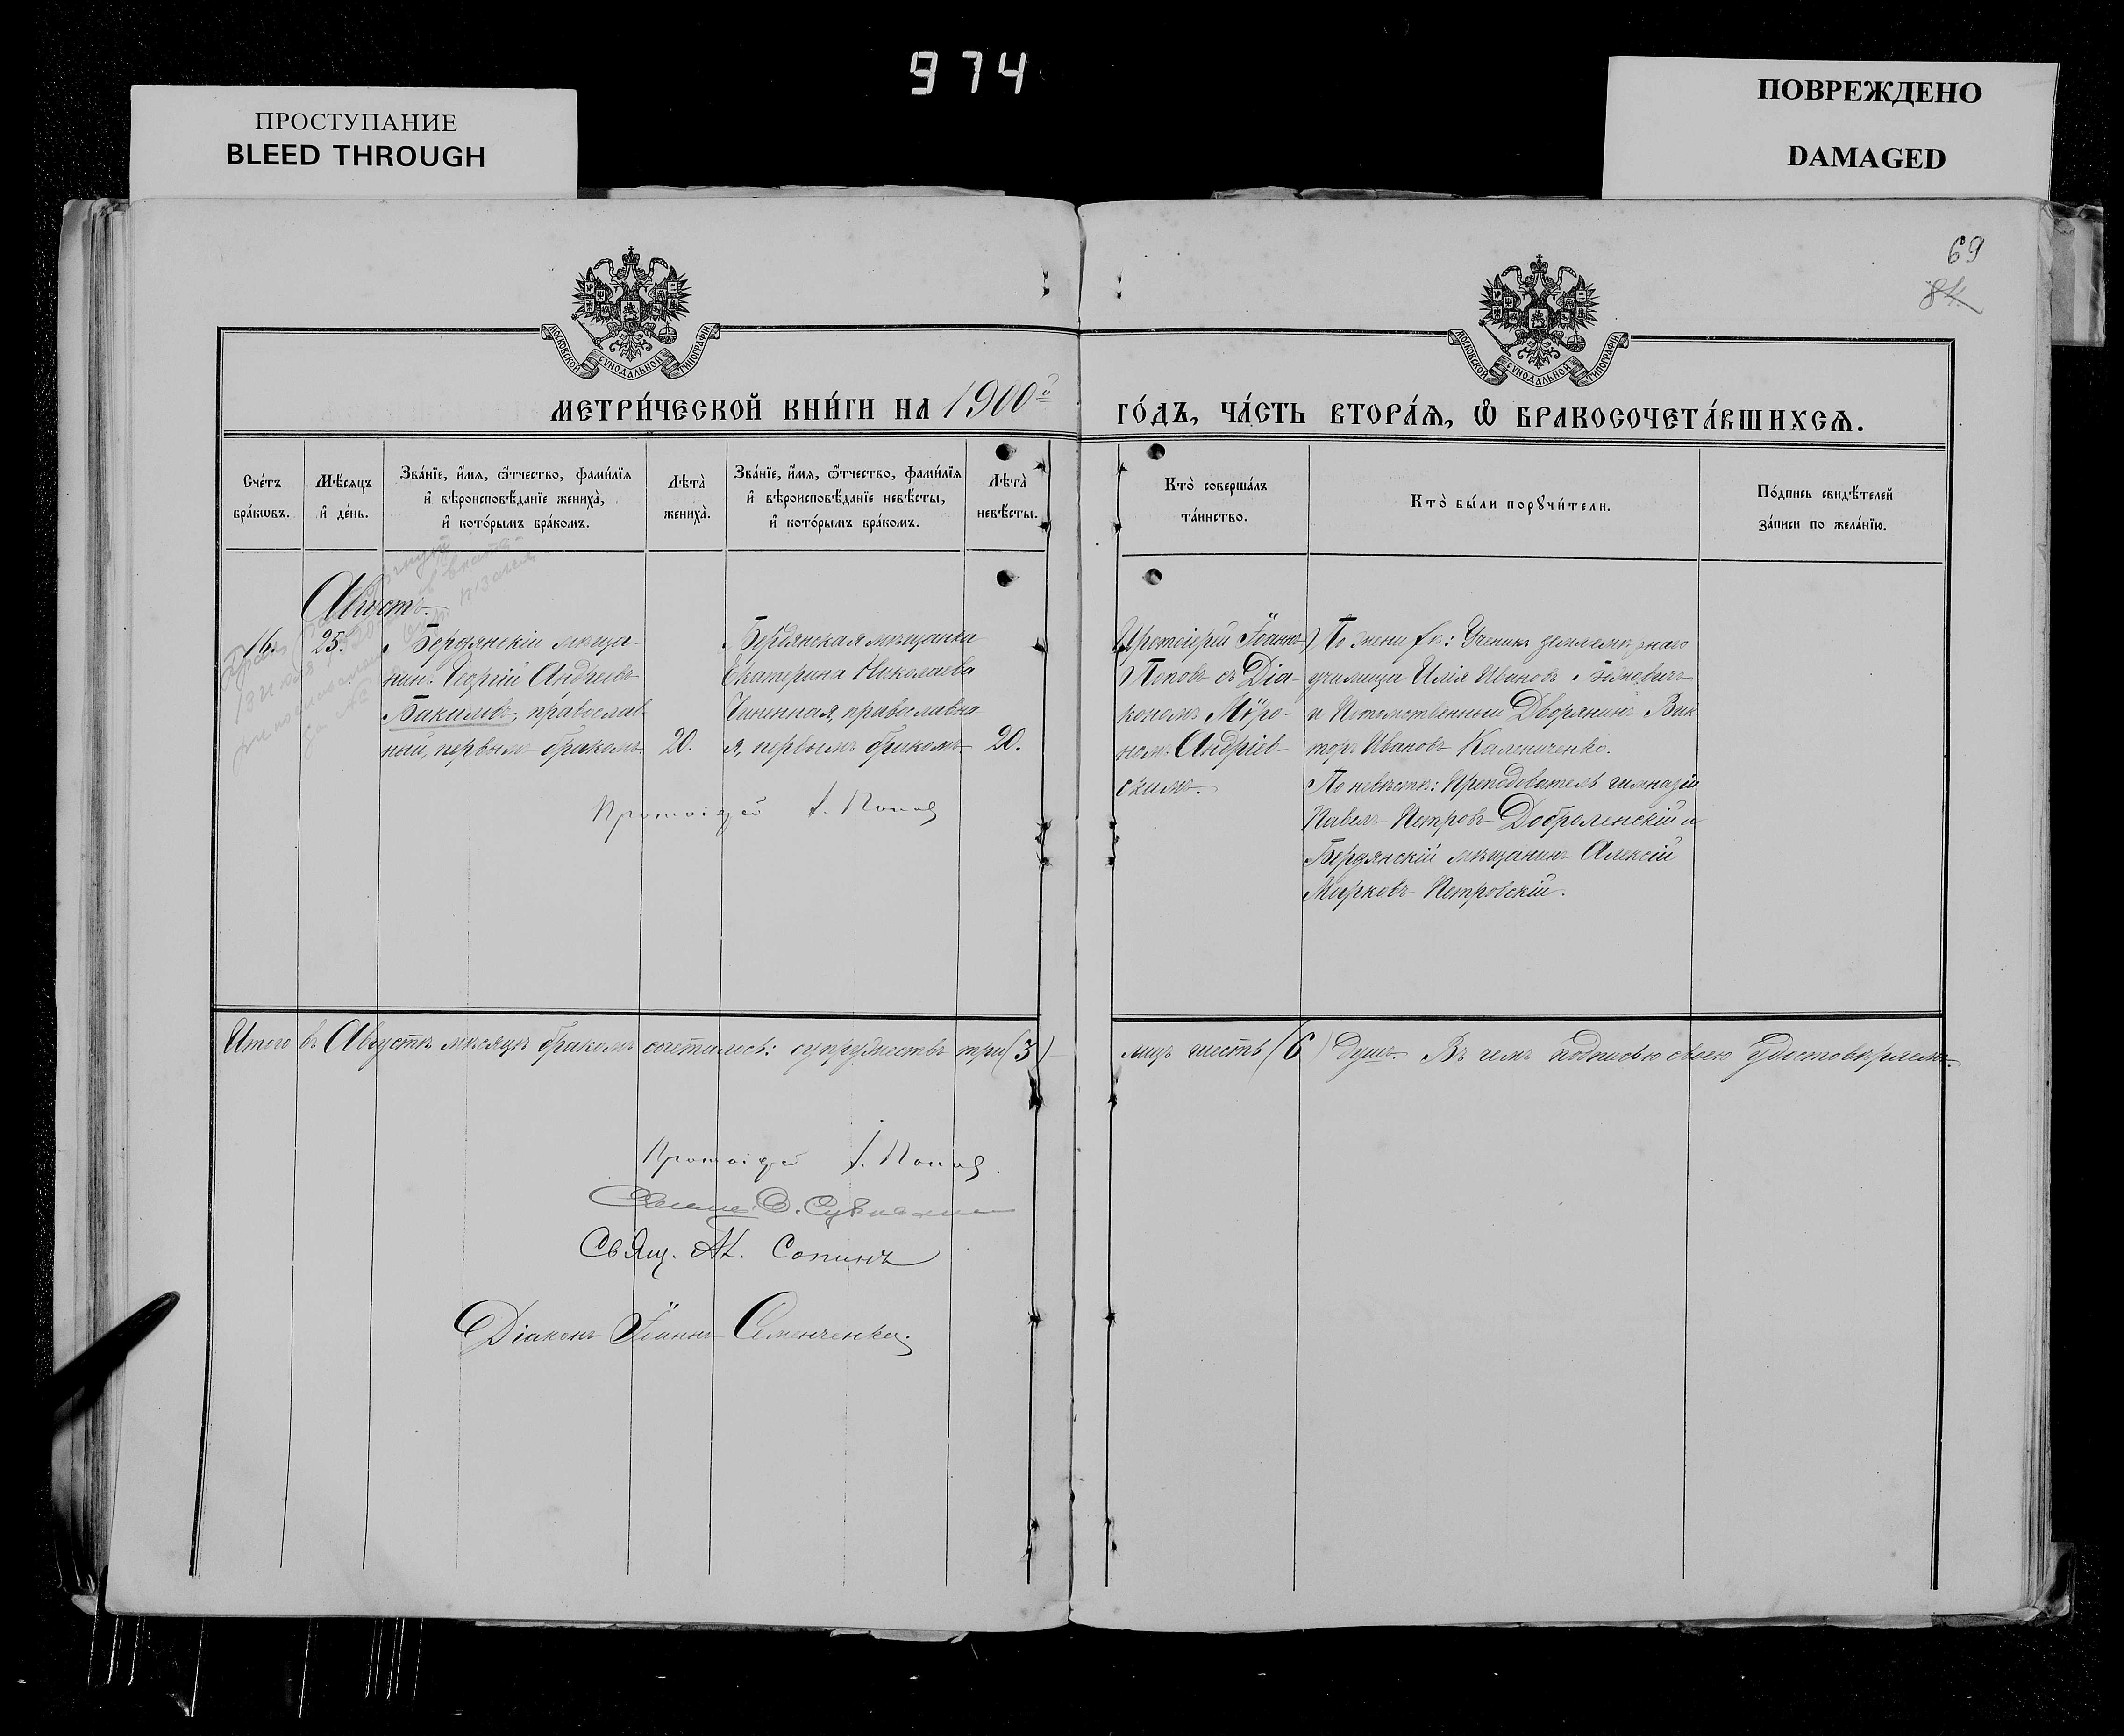 974
ПРОСТУПАНИЕ
BLEED THROUGH
ПОВРЕЖДЕНО
DAMAGED
69
МОСКОВСКОЙ СѴНОДАЛЬНОЙ ТИПОГРАФІИ
МОСКОВСКОЙ СѴНОДАЛЬНОЙ ТИПОГРАФІИ
МЕТРИ́ЧЕСКОЙ КНИ́ГИ НА 1900й
ГО́ДЪ, ЧА́СТЬ ВТОРА́Ѧ, Ѡ҆ БРАКОСОЧЕТА́ВШИХСѦ.
Сче́тъ
бра́кѡвъ.
Мѣ́сѧцъ
и҆ де́нь.
Зва́нїе, и҆́мѧ, ѻ҆́тчество, фами́лїѧ
и҆ вѣроисповѣ́данїе жениха̀,
и҆ кото́рымъ бра́комъ.
Лѣта̀
жениха̀.
Зва́нїе, и҆́мѧ, ѻ҆́тчество, фами́лїѧ
и҆ вѣроисповѣ́данїе невѣ́сты,
и҆ кото́рымъ бра́комъ.
Лѣта̀
невѣ́сты.
Кто̀ соверша́лъ
та́инство.
Кто̀ бы́ли порꙋчи́тели.
По́дпись свидѣ́телей
за́писи по жела́нїю.
Августъ.
16. 25.
Бердянскій мѣща-
нинъ Георгій Андреевъ
Бакаловъ, православ-
ный, первымъ бракомъ
20.
Бердянская мѣщанка
Екатерина Николаева
православна
я, первымъ бракомъ
20.
Протоіерей Іоаннъ
Поповъ съ Діа-
кономъ Мѵро-
номъ Андріев-
скимъ.
По жениху: Ученикъ землемѣрнаго
училища Илія Ивановъ
и Потомственный Дворянинъ Вик-
торъ Ивановъ Калениченко.
По невѣстѣ: Преподаватель гимназіи
Павелъ Петровъ Доброленскій и
Бердянскій мѣщанинъ Алексій
Марковъ Петровскій.
Протоіерей І. Поповъ
Итого въ Августѣ мѣсяцѣ бракомъ сочетались: супружествъ три (3)
лицъ шесть (6) душъ. Въ чемъ подписью своею удостовѣряемъ.
Протоіерей І. Поповъ.
Свящ. Ал. Сопинъ
Діаконъ Іоаннъ Семенченко.